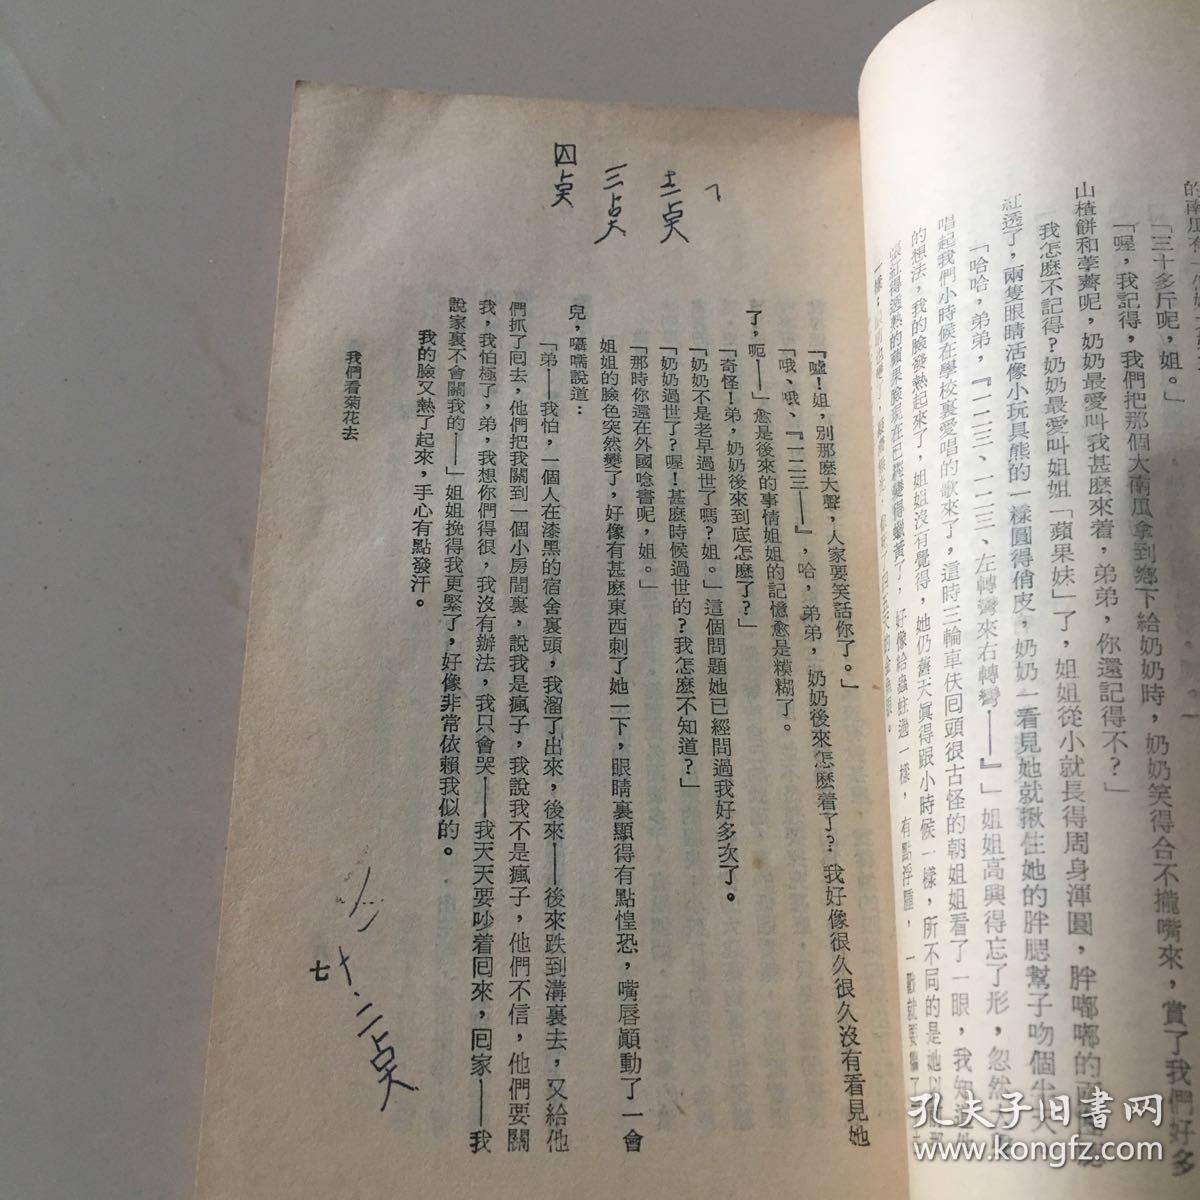 的南瓜有一
「三十多斤呢，姐。」
「喔，我記得，我們把那個大南瓜拿到鄉下給奶奶時，奶奶笑得合不攏嘴來，賞了我們好多
山楂餅和荸薺呢，奶奶最愛叫我甚麼來着，弟弟，你還記得不？」
「我怎麼不記得？奶奶最愛叫姐姐「蘋果妹」了，姐姐從小就長得周身渾圓，胖嘟嘟的
紅透了，兩隻眼睛活像小玩具熊的一樣圓得俏皮，奶奶一看見她就揪住她的胖腮幫子吻個半天
「哈哈，弟弟，『一二三、一二三、左轉彎來右轉彎——』」姐姐高興得忘了形，忽然
唱起我們小時候在學校裏愛唱的歌來了，這時三輪車伕回頭很古怪的朝姐姐看了一眼，我知道他
的想法，我的臉發熱起來了，姐姐沒有覺得，她仍舊天眞得跟小時候一樣，所不同的是她以前那
張紅得透熟的蘋果臉現在已經變得蠟黃了，好像給蟲蛀過一樣，有點浮腫，一戳就要
「噓！姐，別那麼大聲，人家要笑話你了。」
「哦、哦、『一二三——』，哈，弟弟，奶奶後來怎麼着了？我好像很久很久沒有看見她
了，呃——」愈是後來的事情姐姐的記憶愈是糢糊了。
「奇怪！弟，奶奶後來到底怎麼了？」
「奶奶不是老早過世了嗎？姐。」這個問題她已經問過我好多次了。
「奶奶過世了？喔！甚麼時候過世的？我怎麼不知道？」
「那時你還在外國唸書呢，姐。」
姐姐的臉色突然變了，好像有甚麼東西刺了她一下，眼睛裏顯得有點惶恐，嘴唇顚動了一會
兒，囁嚅說道：
「弟——我怕，一個人在漆黑的宿舍裏頭，我溜了出來，後來——後來跌到溝裏去，又給他
們抓了回去，他們把我關到一個小房間裏，說我是瘋子，我說我不是瘋子，他們不信，他們要關
我，我怕極了，弟，我想你們得很，我沒有辦法，我只會哭——我天天要吵着回來，回家——我
說家裏不會關我的——」姐姐挽得我更緊了，好像非常依賴我似的。
我的臉又熱了起來，手心有點發汗。
我們看菊花去
七
三点
四点
孔夫子旧书网
www.kongfz.com